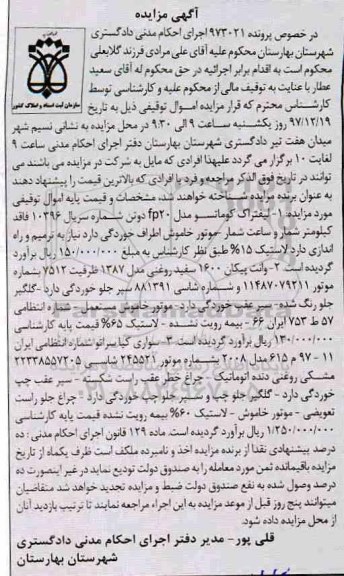 آگهی مزایده
در خصوص پرونده ۹۷۳۰۲۱ اجرای احکام مدنی دادگستری
شهرستان بهارستان محکوم علیه آقای علی مرادی فرزند گلابعلی
محکوم است به اقدام برابر اجرائیه در حق محکوم له آقای سعید
عطار با عنایت به توقیف مالی از محکوم علیه و کارشناسی توسط
کارشناس محترم که قرار مزایده اموال توقیفی ذیل به تاریخ
سازمان ثبت اسناد و املاک کشور
۹۷/۱۲/۱۹ روز یکشنبه ساعت ۹ الی ۹.۳۰ در محل مزایده به نشانی نسیم شهر
میدان هفت تیر دادگستری شهرستان بهارستان دفتر اجرای احکام مدنی ساعت ۹
لغایت ۱۰ برگزار می گردد علیهذا افرادی که مایل به شرکت در مزایده می باشند می
توانند در تاریخ فوق الذکر مراجعه و فرد یا افرادی که بالاترین قیمت را پیشنهاد دهند
به عنوان برنده مزایده شناخته خواهند شد. مشخصات و قیمت پایه اموال توقیفی
مورد مزایده ۱- لیفتراک کوماتسو مدل fp۲۰ دوتن شماره سریال ۱۰۳۹۶ فاقد
کیلومتر شمار و ساعت شمار -موتور خاموش اطراف خوردگی دارد نیاز به ترمیم و راه
اندازی دارد لاستیک ۱۵% طبق نظر کارشناس به مبلغ ۱۵۰/۰۰۰/۰۰۰ ریال برآورد
گردیده است. ۲- وانت پیکان ۱۶۰۰ سفید روغنی مدل ۱۳۸۷ ظرفیت ۷۵۱۲ بشماره
موتور ۱۱۴۸۷۰۷۹۲۱۱ و شماره شاسی ۸۸۱۳۹۱ سپر جلو خوردگی دارد -گلگیر
جلو رنگ شده- سپر عقب خوردگی دارد- موتور خاموش مستعمل- شماره انتظامی
۵۷ ط ۷۵۳ ایران ۶۶ - بیمه رویت نشده - لاستیک ۶۵% قیمت پایه کارشناسی
۱۳۰/۰۰۰/۰۰۰ ریال برآورد گردیده است. ۳-سواری کیا سراتو شماره انتظامی ایران
۱۱ - ۹۷ م ۶۱۵ مدل ۲۰۰۸ بشماره موتور ۲۴۵۵۲۱ شاسی ۲۲۳۳۸۵۵۷۲۰۵
مشکی روغنی دنده اتوماتیک - چراغ خطر عقب راست شکسته - سپر عقب چپ
خوردگی دارد - گلگیر جلو چپ و سپر جلو چپ خوردگی دارد - چراغ جلو راست
تعویضی - موتور خاموش - لاستیک ۶۰% بیمه رویت نشده قیمت پایه کارشناسی
۱/۲۵۰/۰۰۰/۰۰۰ ریال برآورد گردیده است. ماده ۱۲۹ قانون اجرای احکام مدنی: ده
درصد پیشنهادی نقدا از برنده مزایده اخذ و نامبرده مکلف است ظرف یکماه از تاریخ
مزایده باقیمانده ثمن مورد معامله را به صندوق دولت تودیع نماید در غیر اینصورت ده
درصد وصول شده به نفع صندوق دولت ضبط و مزایده تجدید خواهد شد متقاضیان
میتوانند پنج روز قبل از موعد مزایده به این اجراء مراجعه نمایند تا ترتیب بازدید آنان
از محل مزایده داده شود.
قلی پور- مدیر دفتر اجرای احکام مدنی دادگستری
شهرستان بهارستان